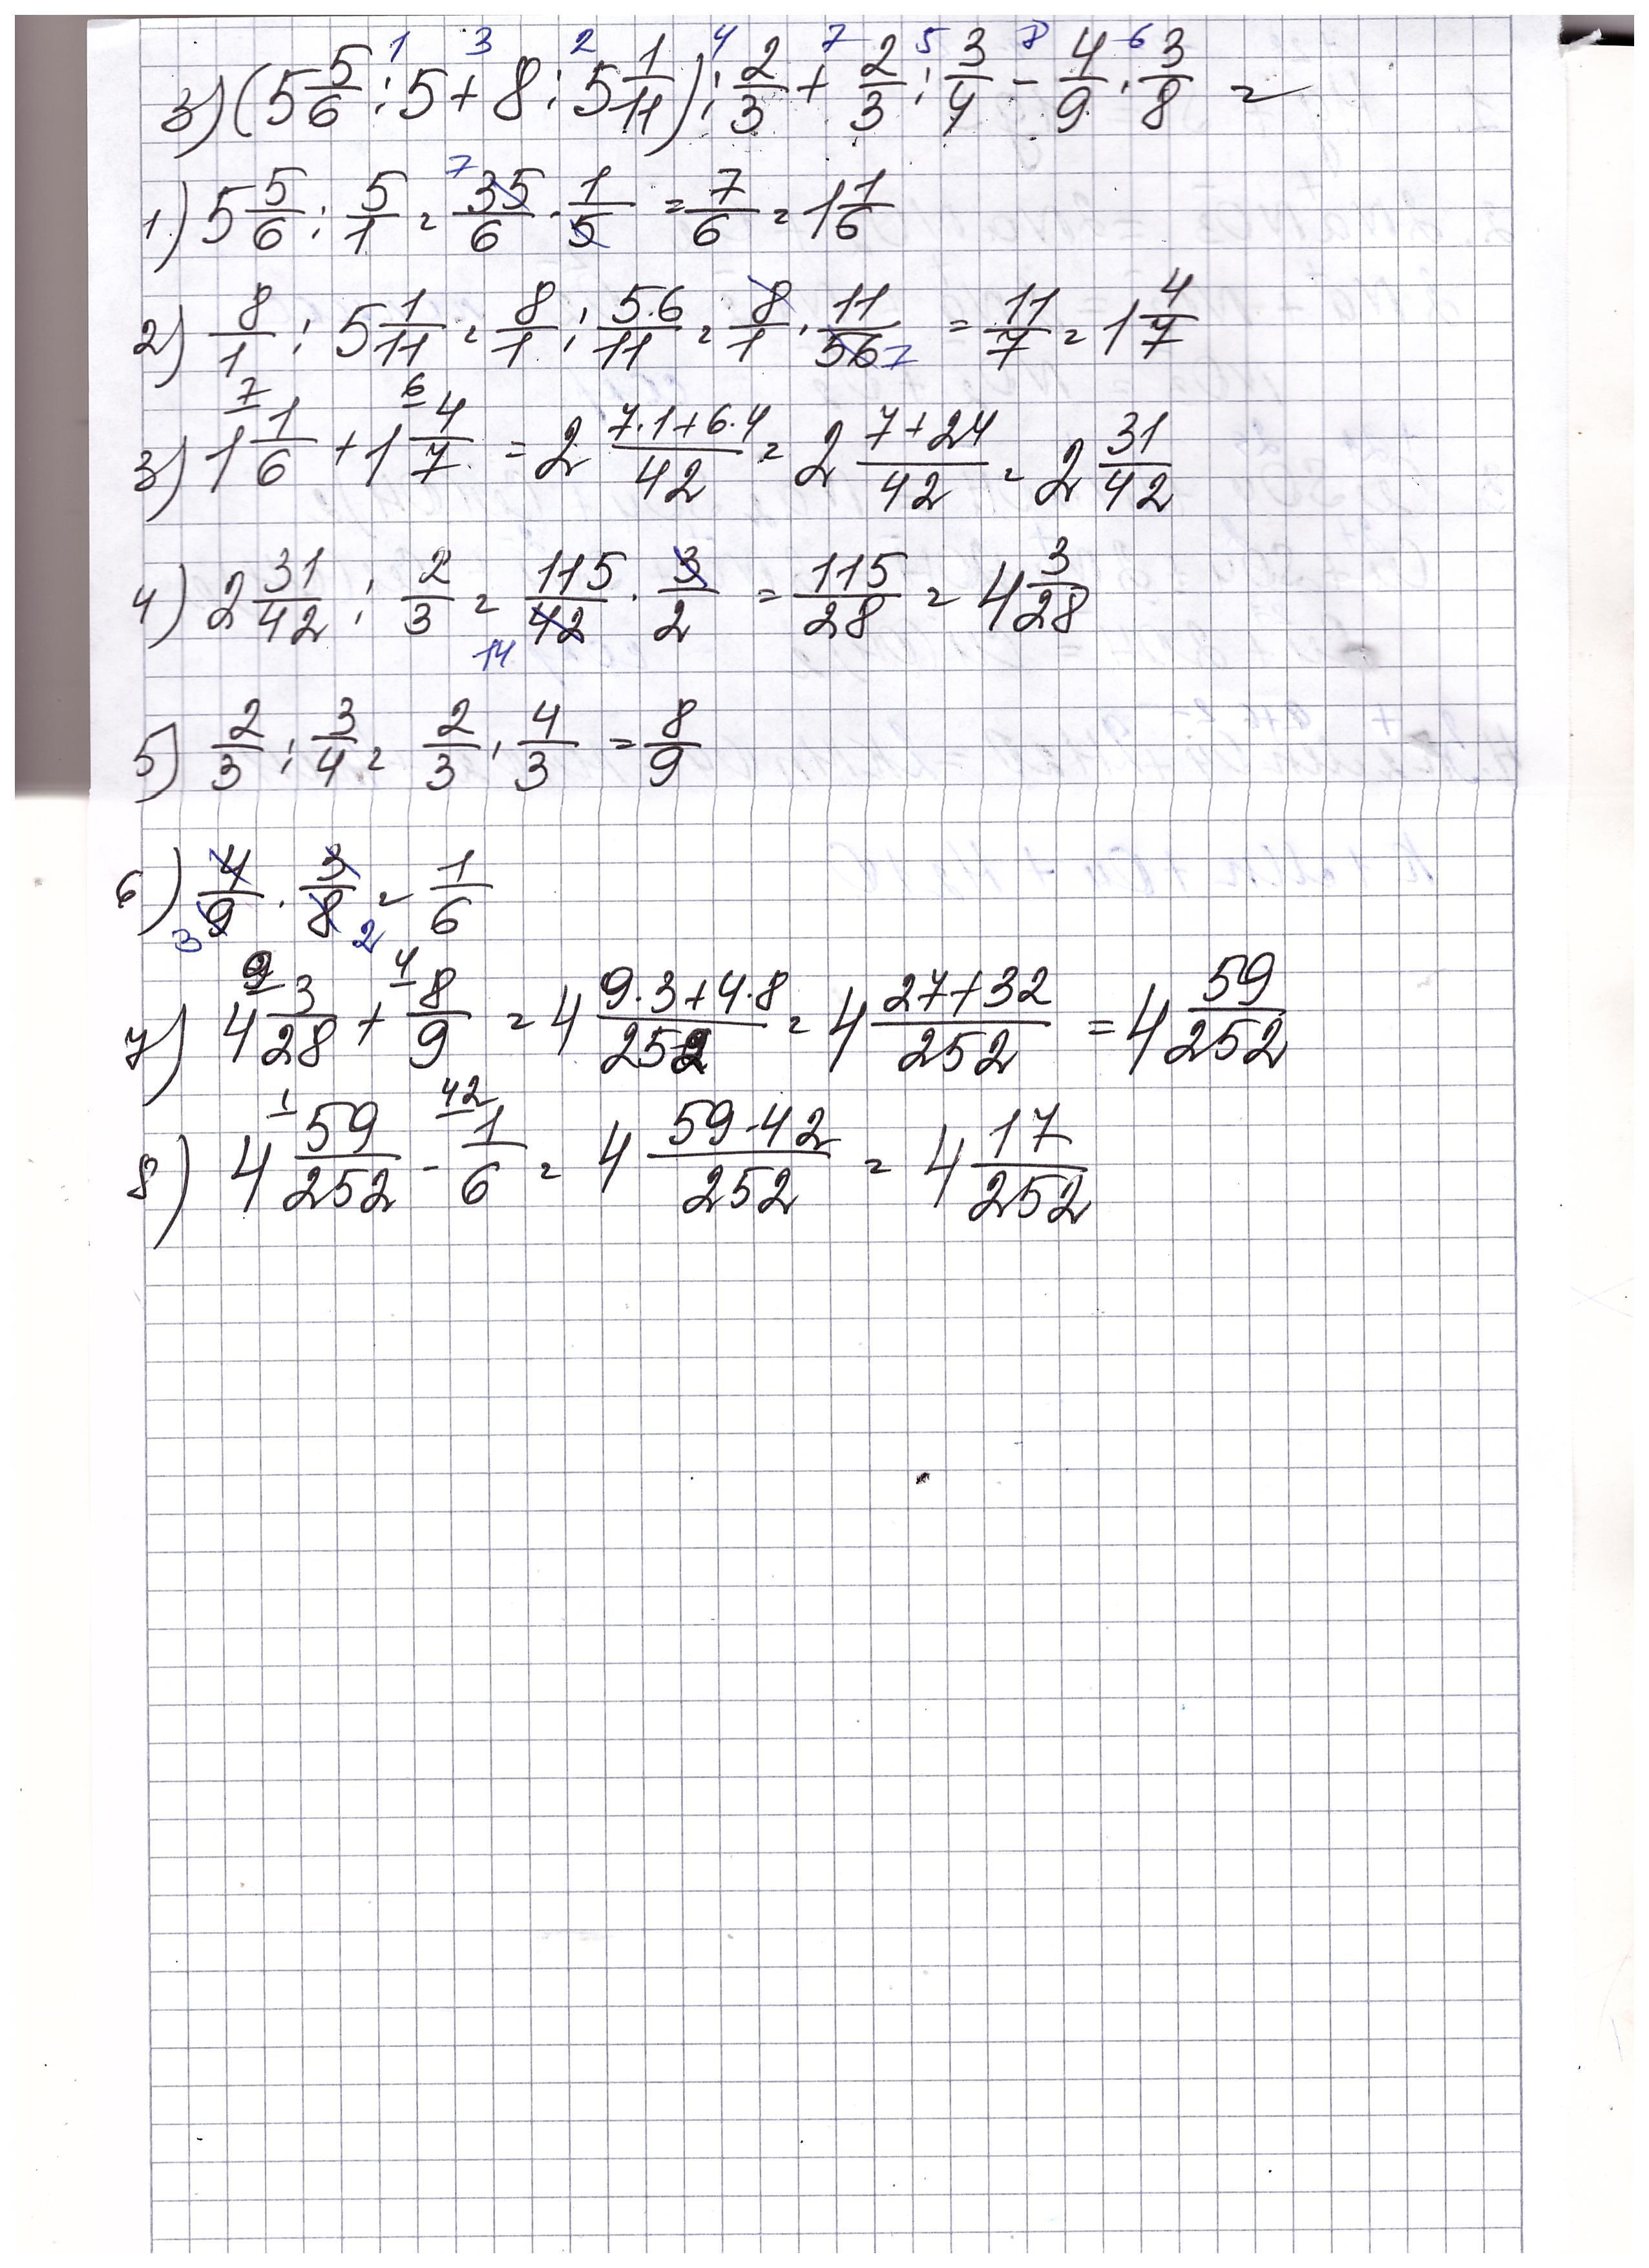 1 3 2 4 7 5 8 6
3) (5 5/6 : 5 + 8 : 5 1/11) : 2/3 + 2/3 : 3/4 - 4/9 · 3/8 =
1) 5 5/6 : 5/1 = 7 35/6 · 1/5 = 7/6 = 1 1/6
2) 8/1 : 5 1/11 = 8/1 : 56/11 = 8/1 · 11/56 7 = 11/7 = 1 4/7
7 6
3) 1 1/6 + 1 4/7 = 2 7·1+6·4/42 = 2 7+24/42 = 2 31/42
4) 2 31/42 : 2/3 = 115/42 · 3/2 = 115/28 = 4 3/28
14
5) 2/3 : 3/4 = 2/3 · 4/3 = 8/9
6) 4/9 · 3/8 = 1/6
3 2
9 4
7) 4 3/28 + 8/9 = 4 9·3+4·8/252 = 4 27+32/252 = 4 59/252
1 42
8) 4 59/252 - 1/6 = 4 59-42/252 = 4 17/252